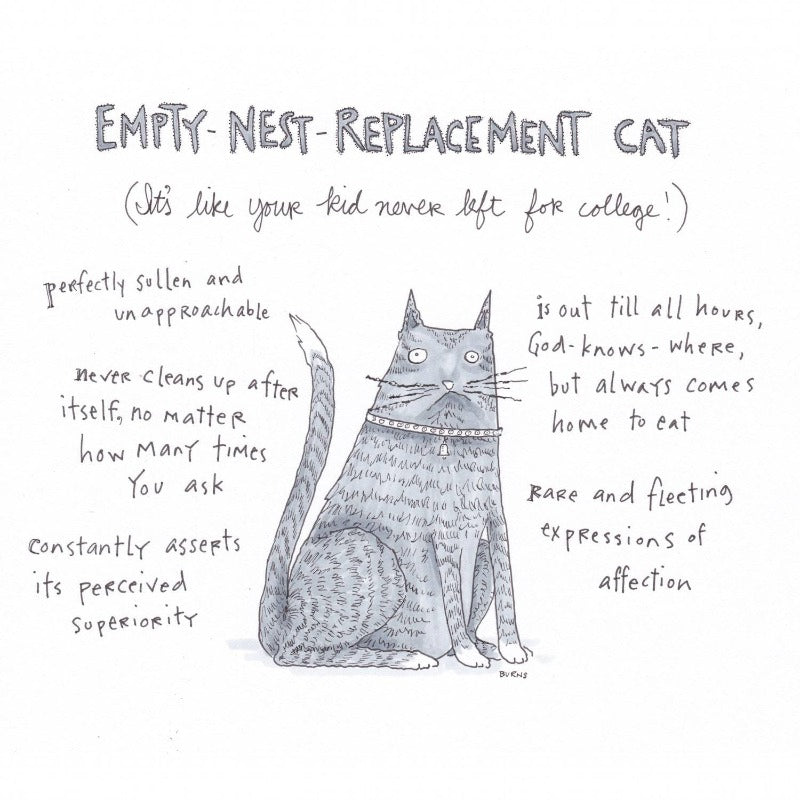 EMPTY-NEST-REPLACEMENT CAT
(It's like your kid never left for college!)
perfectly sullen and
unapproachable
never cleans up after
itself, no matter
how many times
you ask
constantly asserts
its perceived
superiority
is out till all hours,
God-knows-where,
but always comes
home to eat
rare and fleeting
expressions of
affection
BURNS